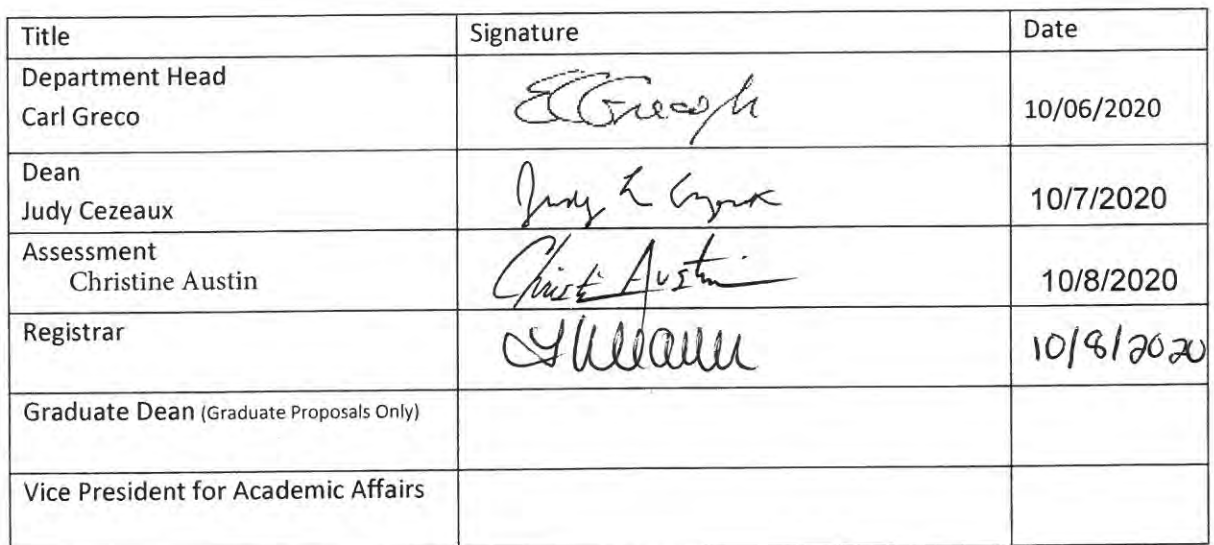 Title Signature Date
Department Head
Carl Greco
10/06/2020
Dean
Judy Cezeaux
Judy L
10/7/2020
Assessment
Christine Austin
Austin
10/8/2020
Registrar
10/8/2020
Graduate Dean (Graduate Proposals Only)
Vice President for Academic Affairs